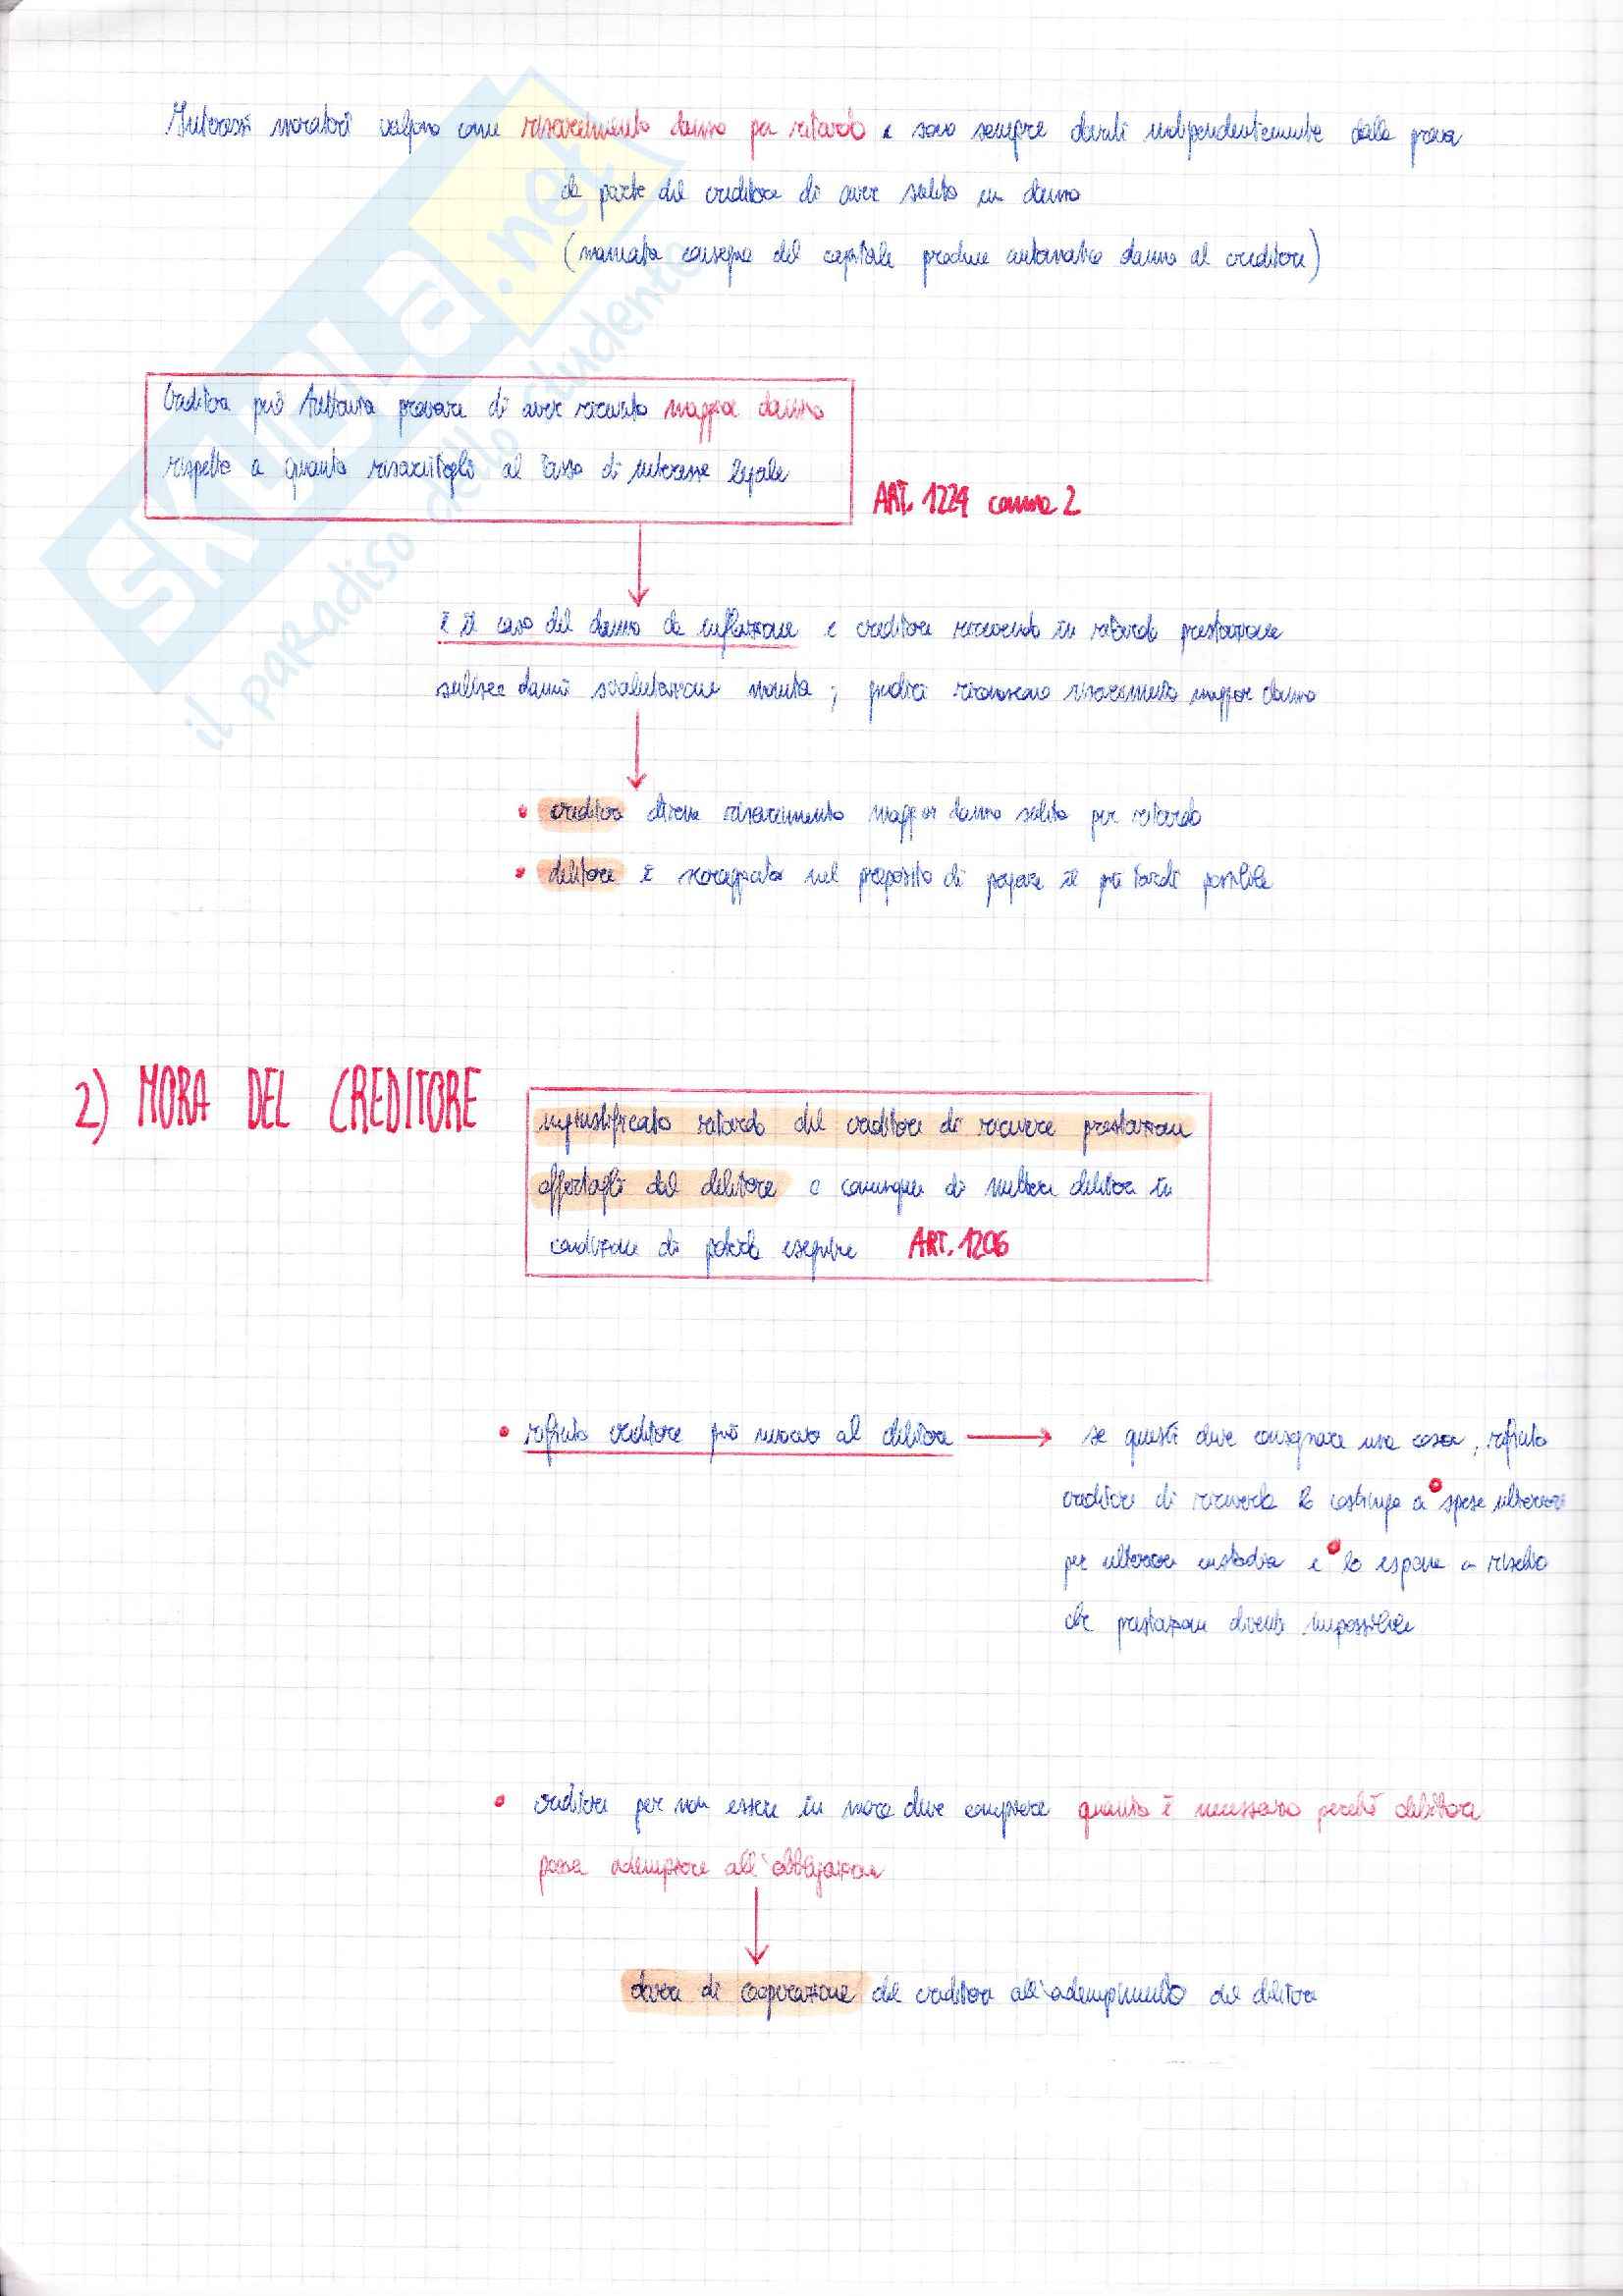 Interessi moratori valgono come risarcimento danno per ritardo e sono sempre dovuti indipendentemente dalla prova
da parte del creditore di aver subito un danno
(mancata consegna del capitale produce automatico danno al creditore)
Creditore può tuttavia provare di aver ricevuto maggior danno
rispetto a quanto risarcitogli al tasso di interesse legale
ART. 1224 comma 2
è il caso del danno da inflazione e creditore ricevendo in ritardo prestazione
subisce danni svalutazione moneta; giudici riconoscono risarcimento maggior danno
• creditore ottiene risarcimento maggior danno subito per ritardo
• debitore è scoraggiato nel proposito di pagare il più tardi possibile
2) MORA DEL CREDITORE
ingiustificato ritardo del creditore di ricevere prestazione
offertagli dal debitore o comunque di mettere debitore in
condizione di poterla eseguire ART. 1206
• rifiuto creditore può nuocere al debitore → se questi deve consegnare una cosa, rifiuto
creditore di riceverla lo costringe a • spese ulteriori
per ulteriore custodia e • lo espone a rischio
che prestazione diventi impossibile
• creditore per non essere in mora deve compiere quanto è necessario perché debitore
possa adempiere all'obbligazione
dovere di cooperazione del creditore all'adempimento del debitore
SKUOLA.net
il paradiso dello studente